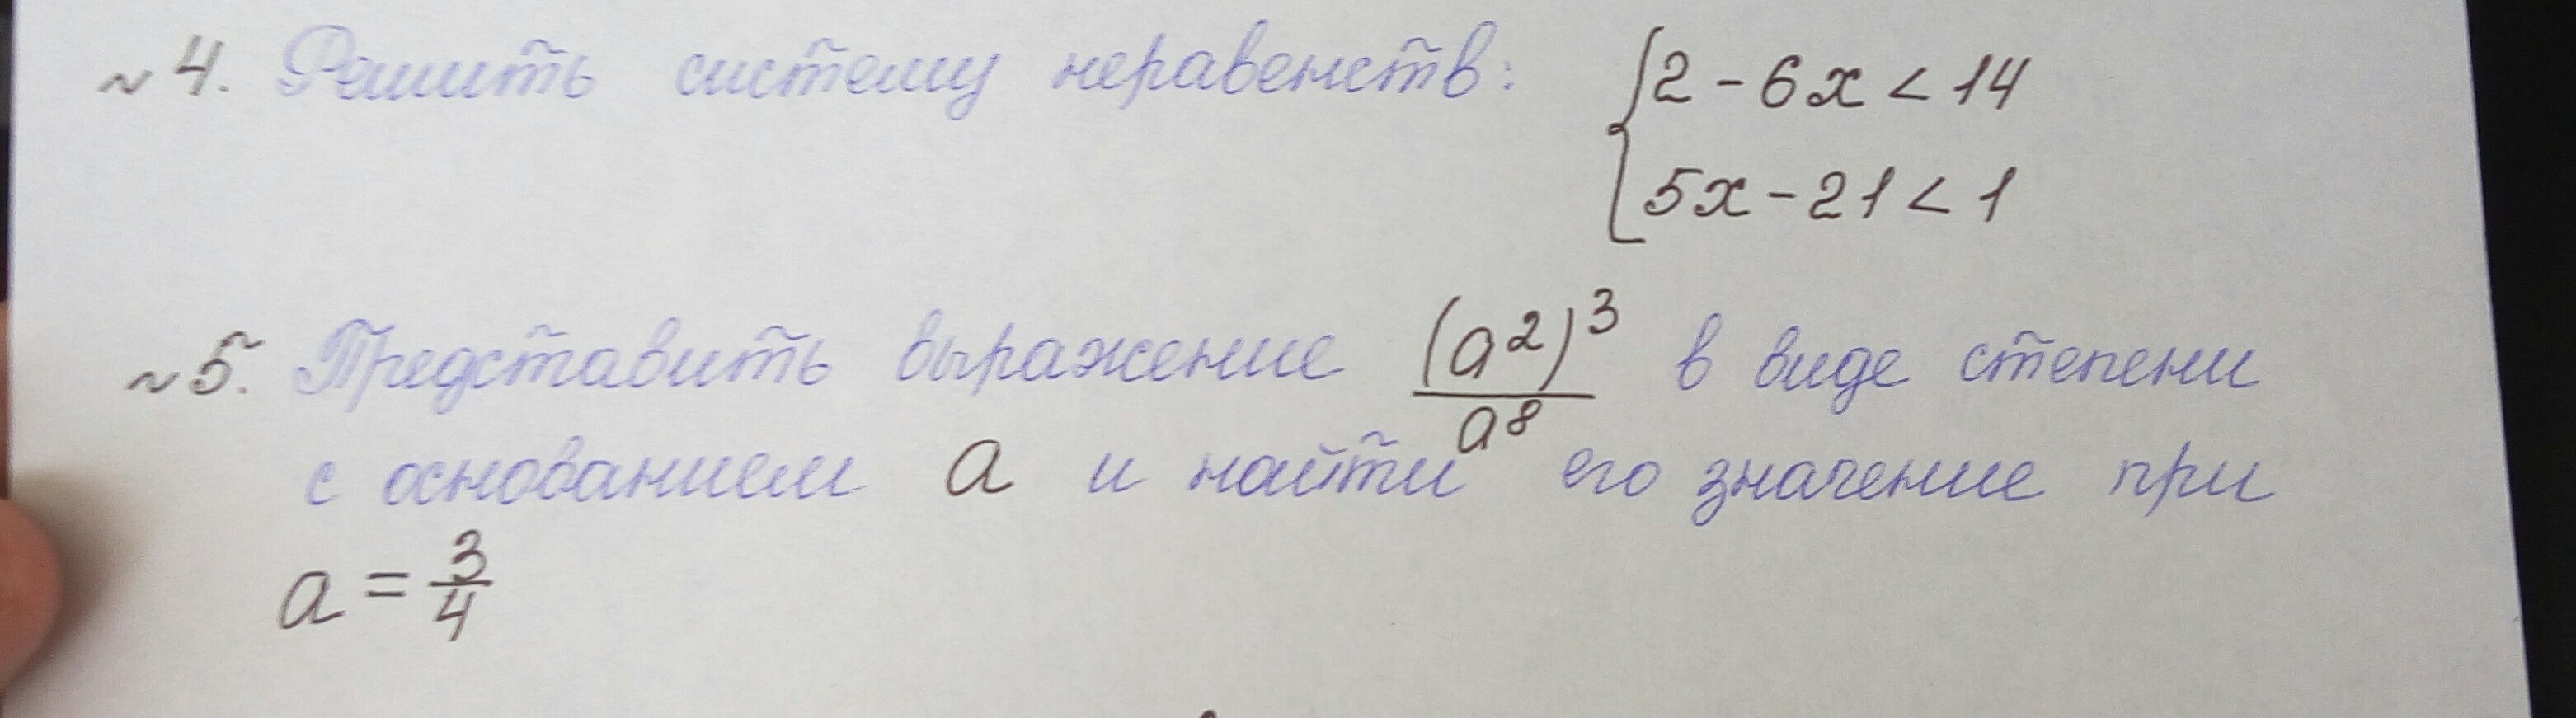 ~ 4. Решить систему неравенств: { 2 - 6x < 14
5x - 21 < 1
~ 5. Представить выражение (a²)³/a⁸ в виде степени
с основанием a и найти его значение при
a = 3/4